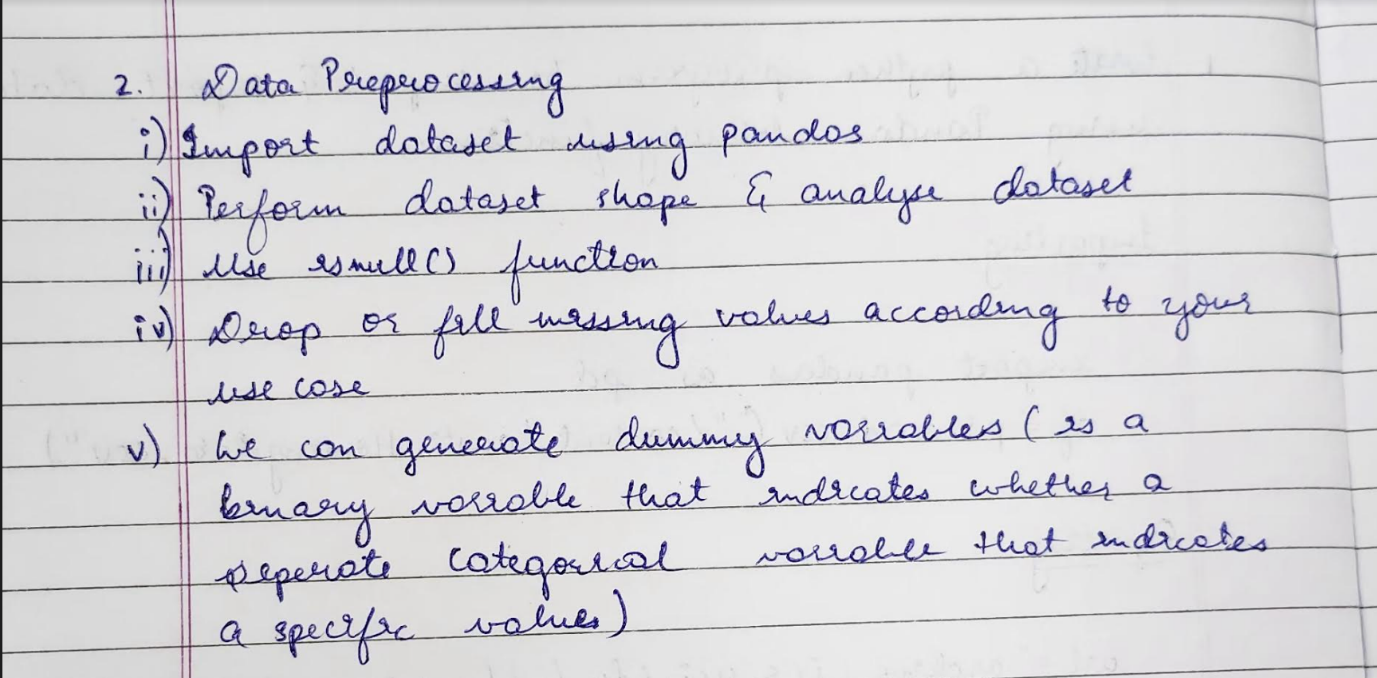 2. Data Preprocessing
i) Import dataset using pandas
ii) Perform dataset shape & analyse dataset
iii) Use isnull() function
iv) Drop or fill missing values according to your
use case
v) We can generate dummy variables ( is a
binary variable that indicates whether a
seperate categorical variable that indicates
a specific values)